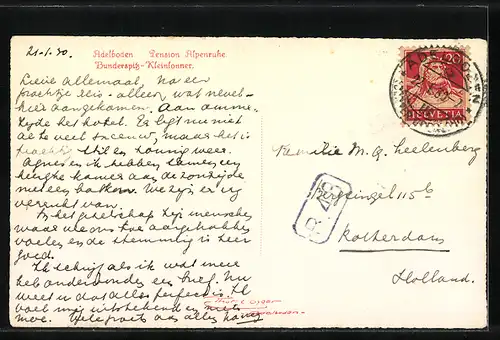 21-1.30.
Adelboden Pension Alpenruhe.
Bunderspitz-Kleinlonner.
Lieve allemaal, Na een
prachtige reis - alleen wat nevel -
hier aangekomen.
het hotel. Er ligt nu niet
al te veel sneeuw, maar het is
prachtig stil en zonnig weer.
Agnes en ik hebben samen een
kamer aan de zonzijde
met een balkon. We zijn er erg
In het gezelschap zijn menschen
waar we ons
voelen en de stemming is zeer
goed.
Ik schrijf als ik wat meer
heb ondervonden een brief. Nu
weet u dat alles perfect is. Ik
voel mij uitstekend en niets
moe. Vele groeten aan alles
HELVETIA
20
Familie M. G. Leelenberg
Bergsingel 115b
Rotterdam
Holland.